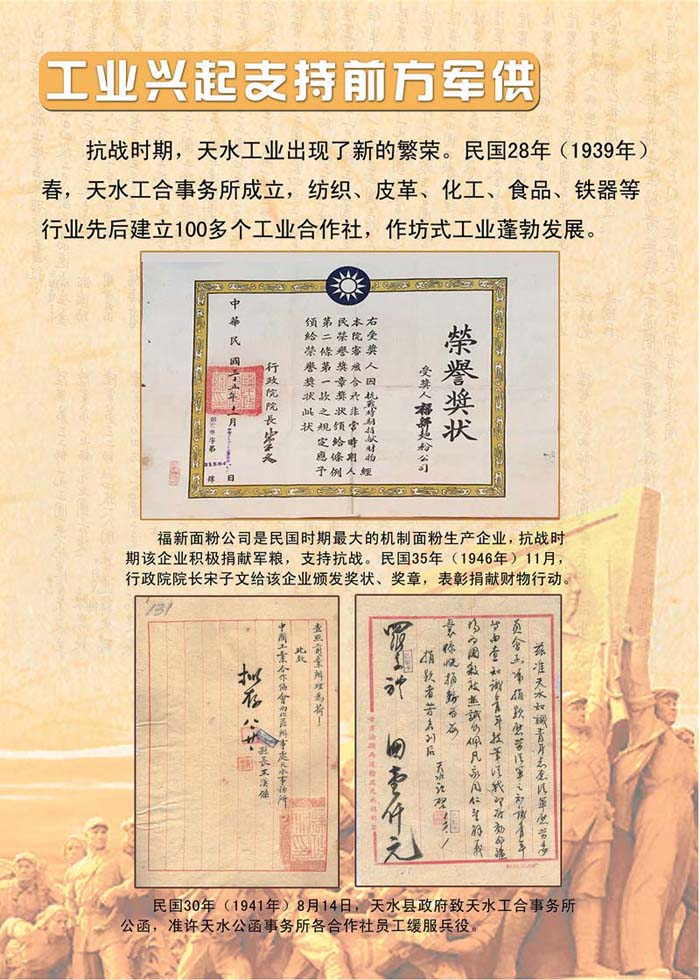 工业兴起支持前方军供
抗战时期，天水工业出现了新的繁荣。民国28年（1939年）
春，天水工合事务所成立，纺织、皮革、化工、食品、铁器等
行业先后建立100多个工业合作社，作坊式工业蓬勃发展。
榮譽奬状
受奬人 福新麵粉公司
右受奬人因抗戰時期捐献財物經
本院審核合於非常時期人
民榮譽奬章奬状頒給條例
第二條第一款之規定應予
頒給榮譽奬状此状
行政院院長
中華民國三十五年十一月 日
福新面粉公司是民国时期最大的机制面粉生产企业，抗战时
期该企业积极捐献军粮，支持抗战。民国35年（1946年）11月，
行政院院长宋子文给该企业颁发奖状、奖章，表彰捐献财物行动。
131
查照前案辦理為荷！
此致
中國工業合作協會西北區辦事處天水事務所
縣長王漢傑
茲准天水知識青年志愿從軍慰勞委
捐款者芳名列后
民国30年（1941年）8月14日，天水县政府致天水工合事务所
公函，准许天水公函事务所各合作社员工缓服兵役。